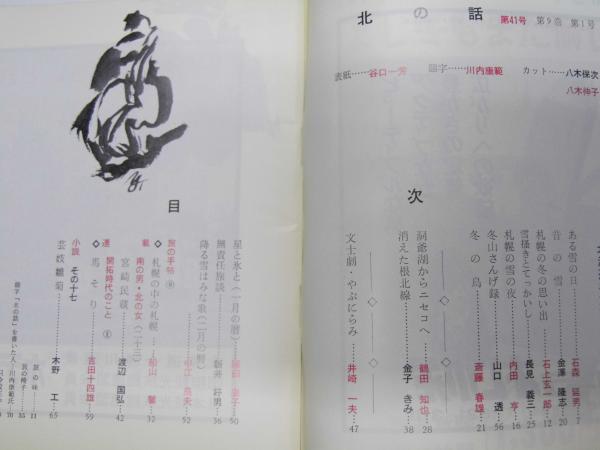 北の話
第41号 第9巻 第1号
表紙……谷口一芳
題字……川内康範
カット……八木保次
八木伸子
目次
ある雪の日……石森延男 7
昔の雪……金澤隆志 20
札幌の冬の思い出……石上玄一郎 12
雪掻きとてっかいし……長見義三 25
札幌の雪の夜……内田亨 16
冬山さんげ録……山口透 56
冬の鳥……斎藤春雄 21
洞爺湖からニセコへ……鶴田知也 28
消えた根北線……金子きみ 38
文士劇・やぶにらみ……井崎一夫 47
星と氷と(一月の暦)
降る雪はみな歌(二月の暦)……子 50
無責任旅談……新井好男 36
旅の手帖
52
◇札幌の中の札幌……船山馨 32
連載
南の男・北の女(二十三)
宮崎民蔵……渡辺国弘 42
開拓時代のこと
◇馬そり……吉田十四雄 59
小説 その十七
芸妓雛菊……木野工 65
題字「北の話」を書いた人・川内康範氏 70
旅の味 11
旅の椅子 35